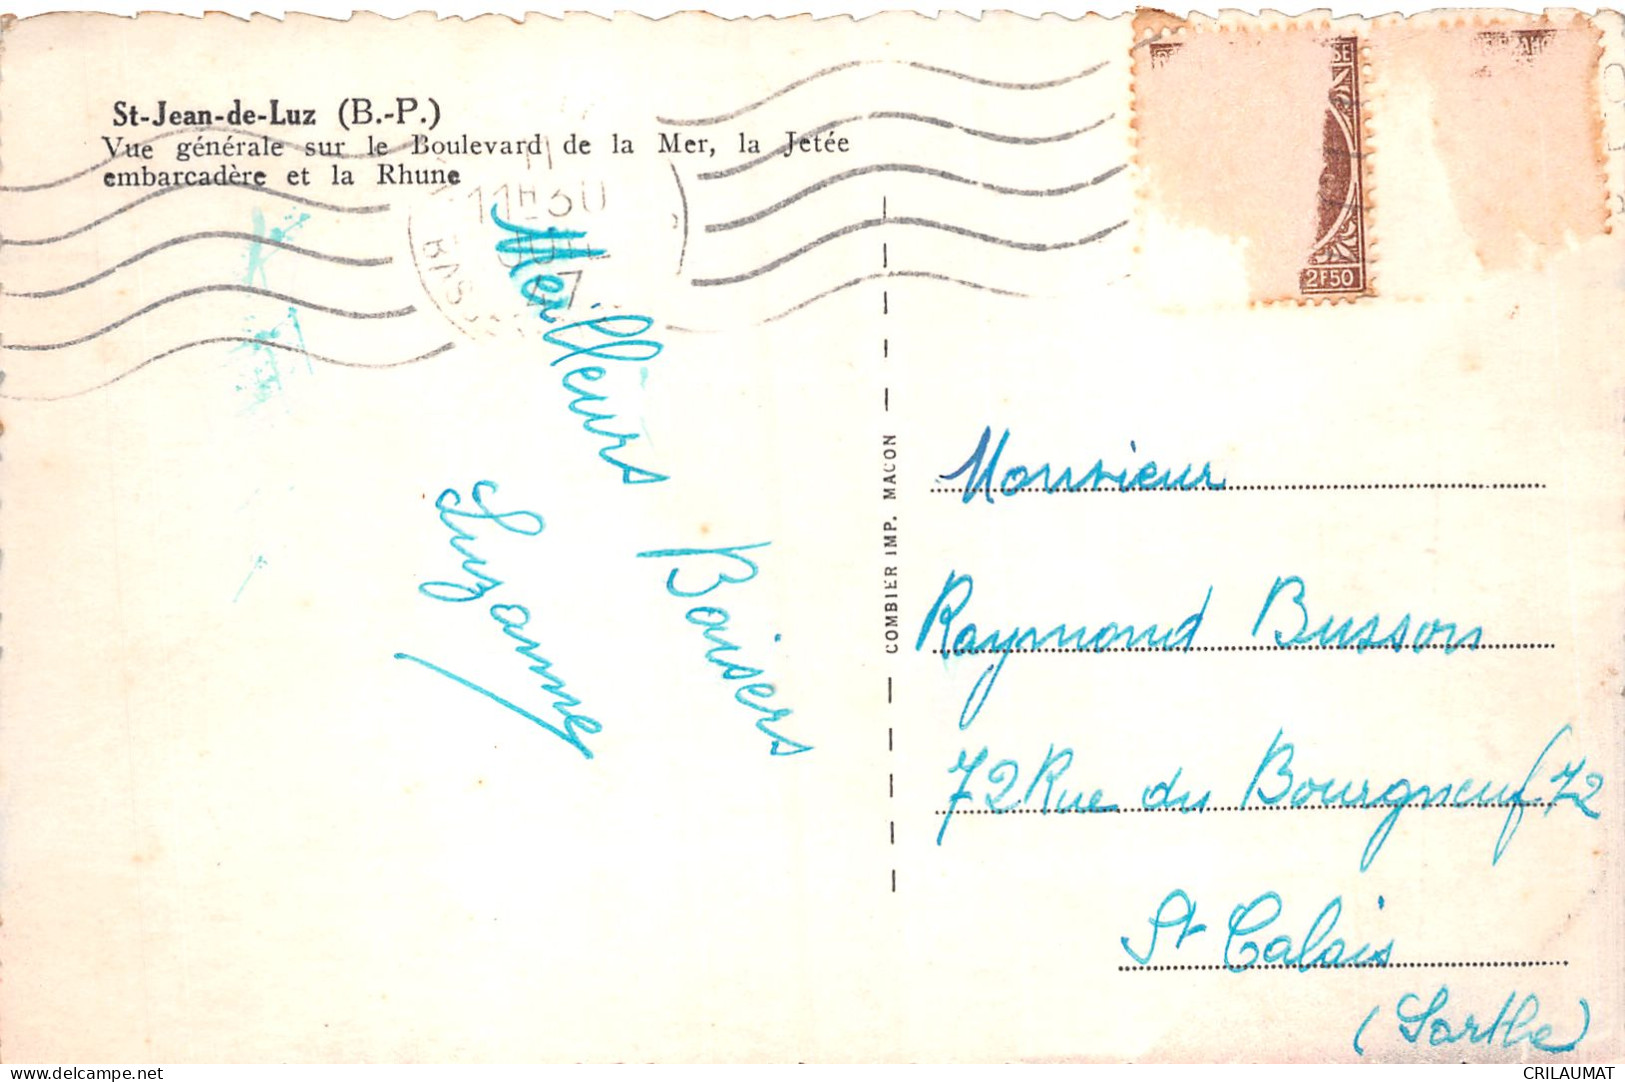 St-Jean-de-Luz (B.-P.)
Vue générale sur le Boulevard de la Mer, la Jetée
embarcadère et la Rhune
11H30
BAS
2F50
Meilleurs Baisers
Suzanne
COMBIER IMP. MACON
Monsieur
Raymond Busson
72 Rue du Bourgneuf 72
St Calais
(Sarthe)
delcampe.net
CRILAUMAT